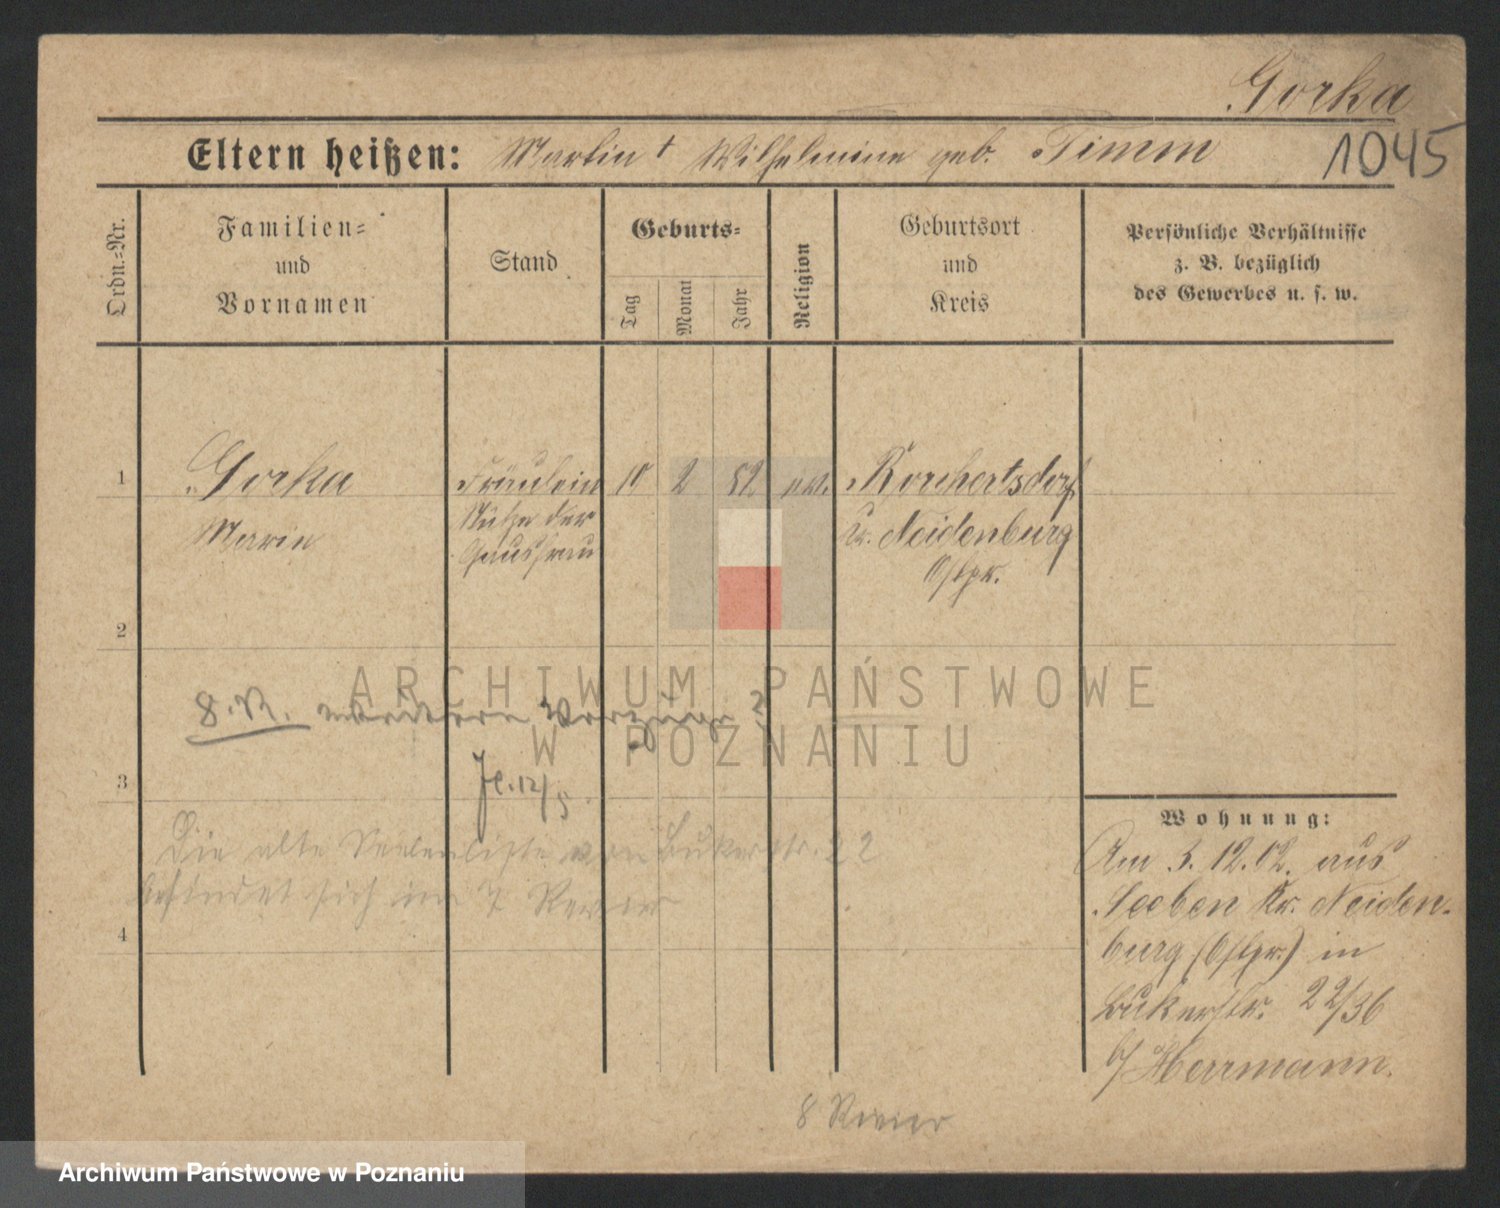 Gorka
1045
Eltern heißen: Martin † Wilhelmine geb. Timm
Ordn.-Nr.
Familien-
und
Vornamen
Stand
Geburts-
Tag
Monat
Jahr
Religion
Geburtsort
und
Kreis
Persönliche Verhältnisse
z. B. bezüglich
des Gewerbes u. s. w.
1
Gorka
Marie
Fräulein
Stütze der
Hausfrau
10
2
82
ev.
Borchertsdorf
Kr. Neidenburg
Ostpr.
2
8. R.
ARCHIWUM PAŃSTWOWE
W POZNANIU
3
12/5
Die alte Seelenliste von Bukerstr. 22
befindet sich im 7 Revier
4
Wohnung:
Am 3. 12. 02. aus
Seeben Kr. Neiden-
burg (Ostpr.) in
Bukerstr. 22/36
b/ Herrmann.
8 Revier
Archiwum Państwowe w Poznaniu